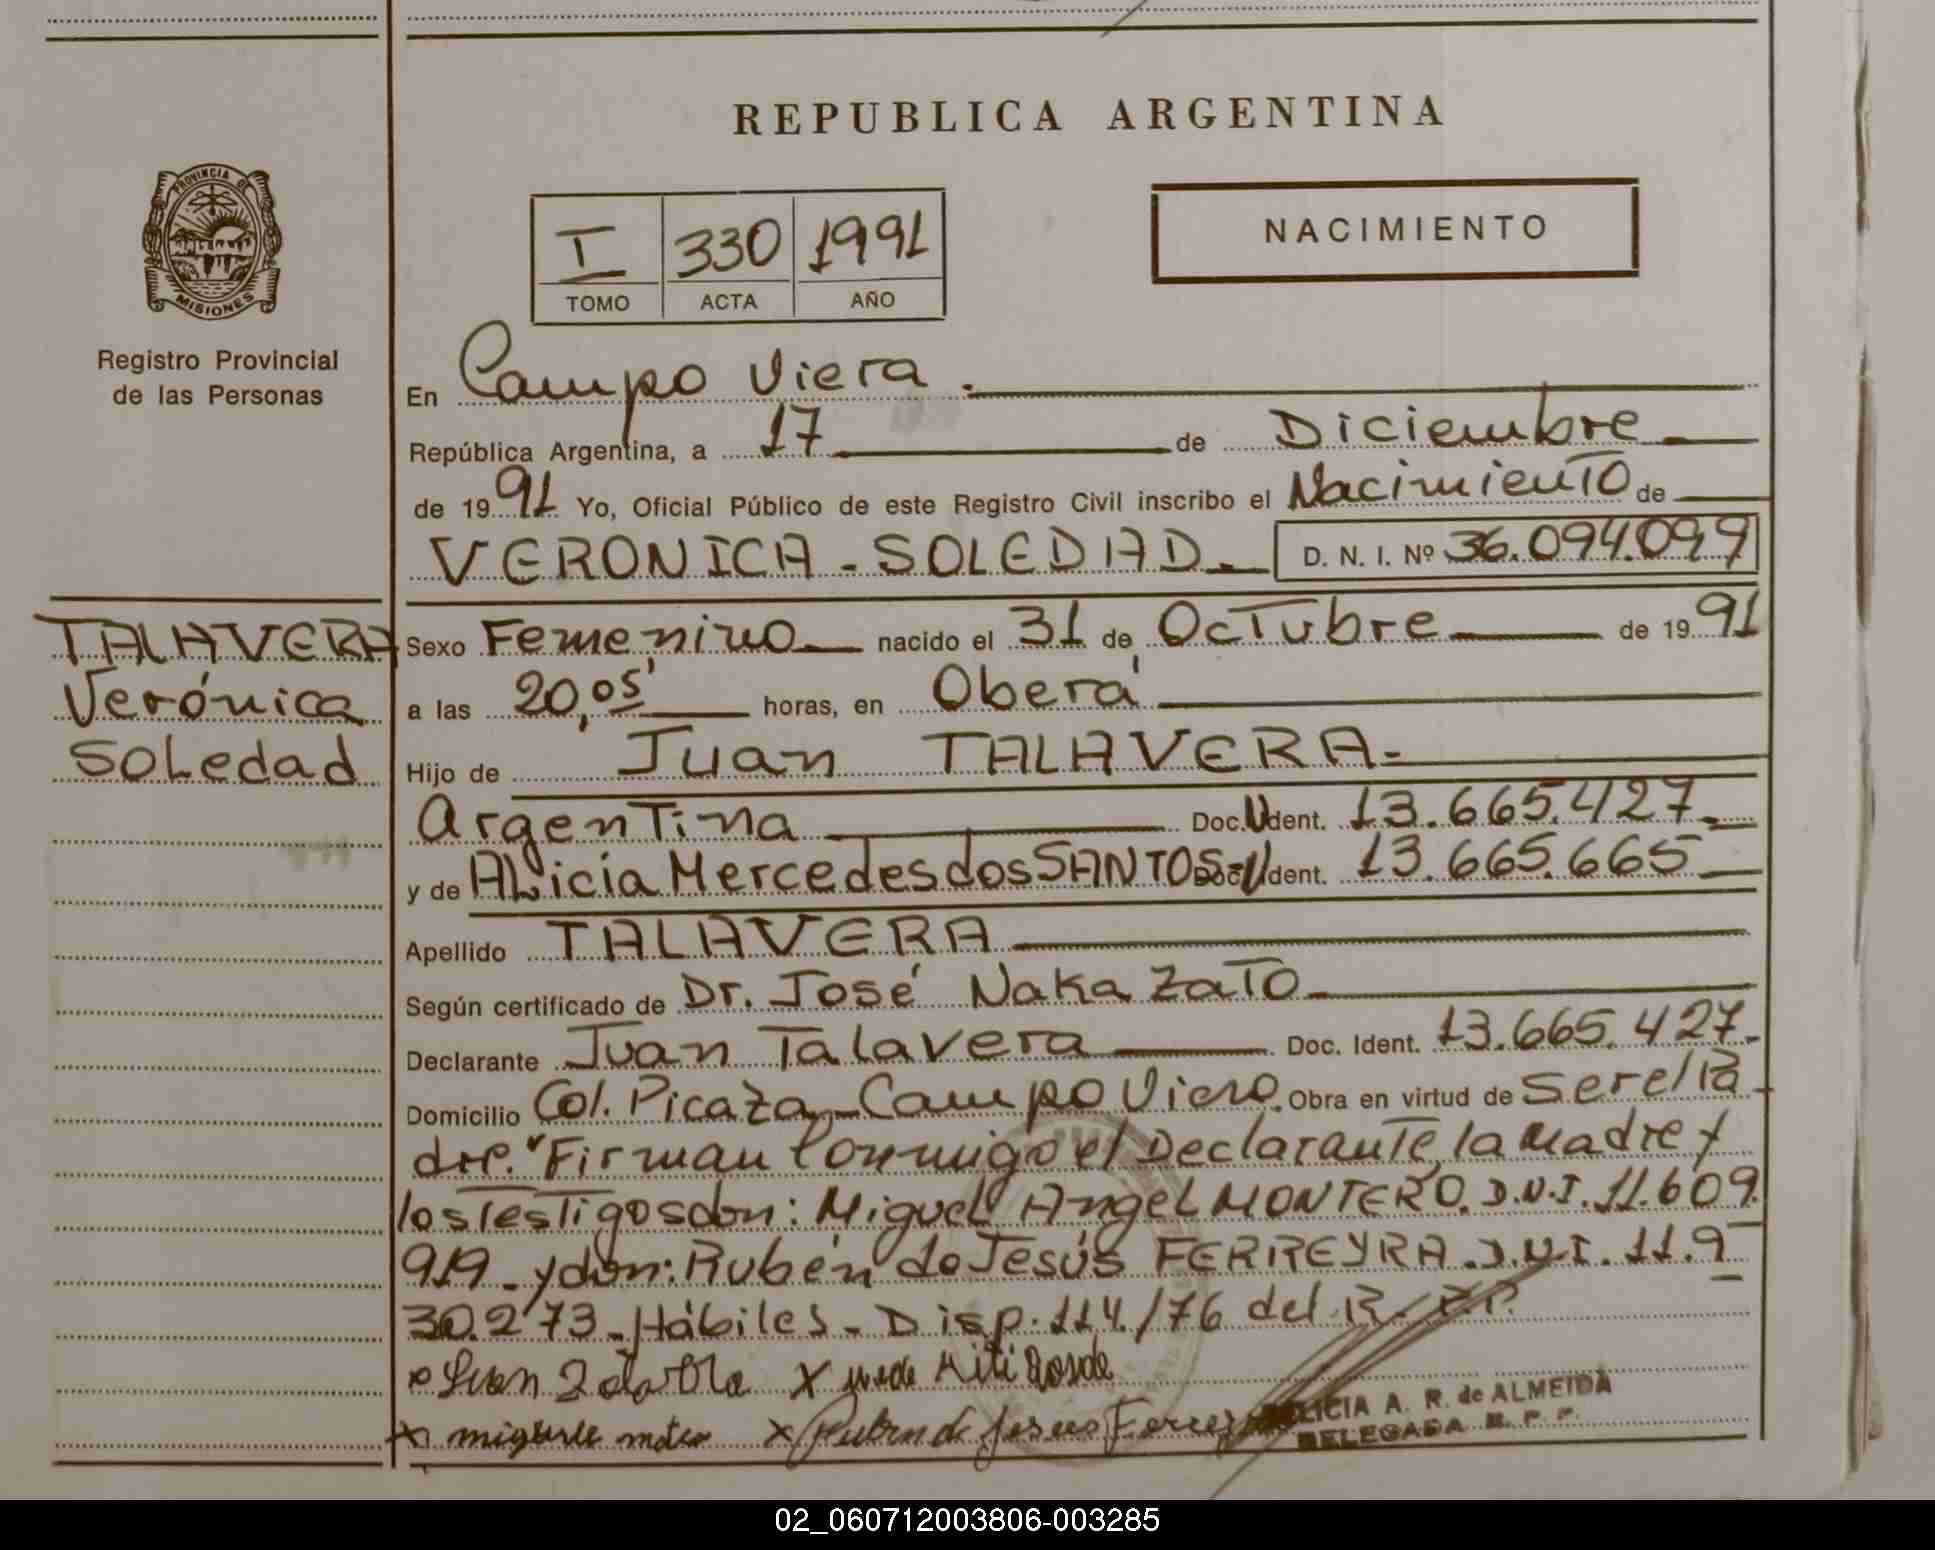 REPUBLICA ARGENTINA
PROVINCIA DE
MISIONES
Registro Provincial
de las Personas
I 330 1991
TOMO ACTA AÑO
NACIMIENTO
En Campo Viera.
República Argentina, a 17 de Diciembre
de 1991 Yo, Oficial Público de este Registro Civil inscribo el Nacimiento de
VERONICA - SOLEDAD D. N. I. Nº 36.094.099
TALAVERA
Verónica
Soledad
Sexo Femenino nacido el 31 de Octubre de 1991
a las 20,05' horas, en Oberá
Hijo de Juan TALAVERA.-
Argentina Doc. Ident. 13.665.427
y de Alicia Mercedes dos SANTOS Doc. Ident. 13.665.665
Apellido TALAVERA
Según certificado de Dr. José Nakazato
Declarante Juan Talavera Doc. Ident. 13.665.427.
Domicilio Col. Picaza - Campo Viera. Obra en virtud de Ser el Pa
dre." Firman Conmigo el Declarante, la Madre y
los Testigos don: Miguel Angel MONTERO. D.N.I. 11.609.
919 - y don: Rubén de Jesús FERREYRA. D.N.I. 11.9
30.273 - Hábiles - Disp. 114/76 del R.P.P.
Ruben de Jesus Ferrey
LICIA A. R. de ALMEIDA
DELEGADA R. P. P.
02_060712003806-003285